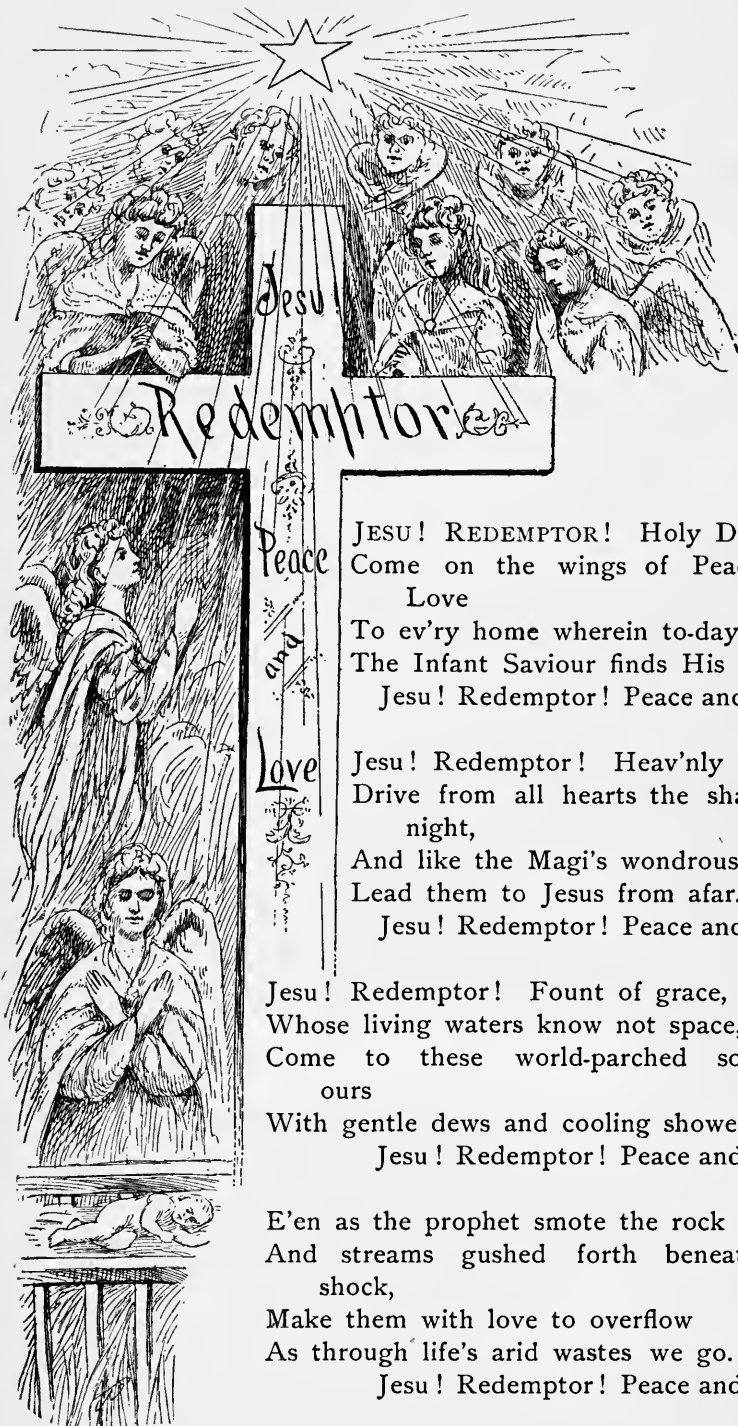 Jesu!
Redemptor
Peace
and
Love
JESU! REDEMPTOR! Holy
Come on the wings of
Love
To ev'ry home wherein to-day
The Infant Saviour finds His
Jesu! Redemptor! Peace and
Jesu! Redemptor! Heav'nly
Drive from all hearts the
night,
And like the Magi's wondrous
Lead them to Jesus from afar.
Jesu! Redemptor! Peace and
Jesu! Redemptor! Fount of grace,
Whose living waters know not space,
Come to these world-parched
ours
With gentle dews and cooling
Jesu! Redemptor! Peace and
E'en as the prophet smote the rock
And streams gushed forth
shock,
Make them with love to overflow
As through life's arid wastes we go.
Jesu! Redemptor! Peace and